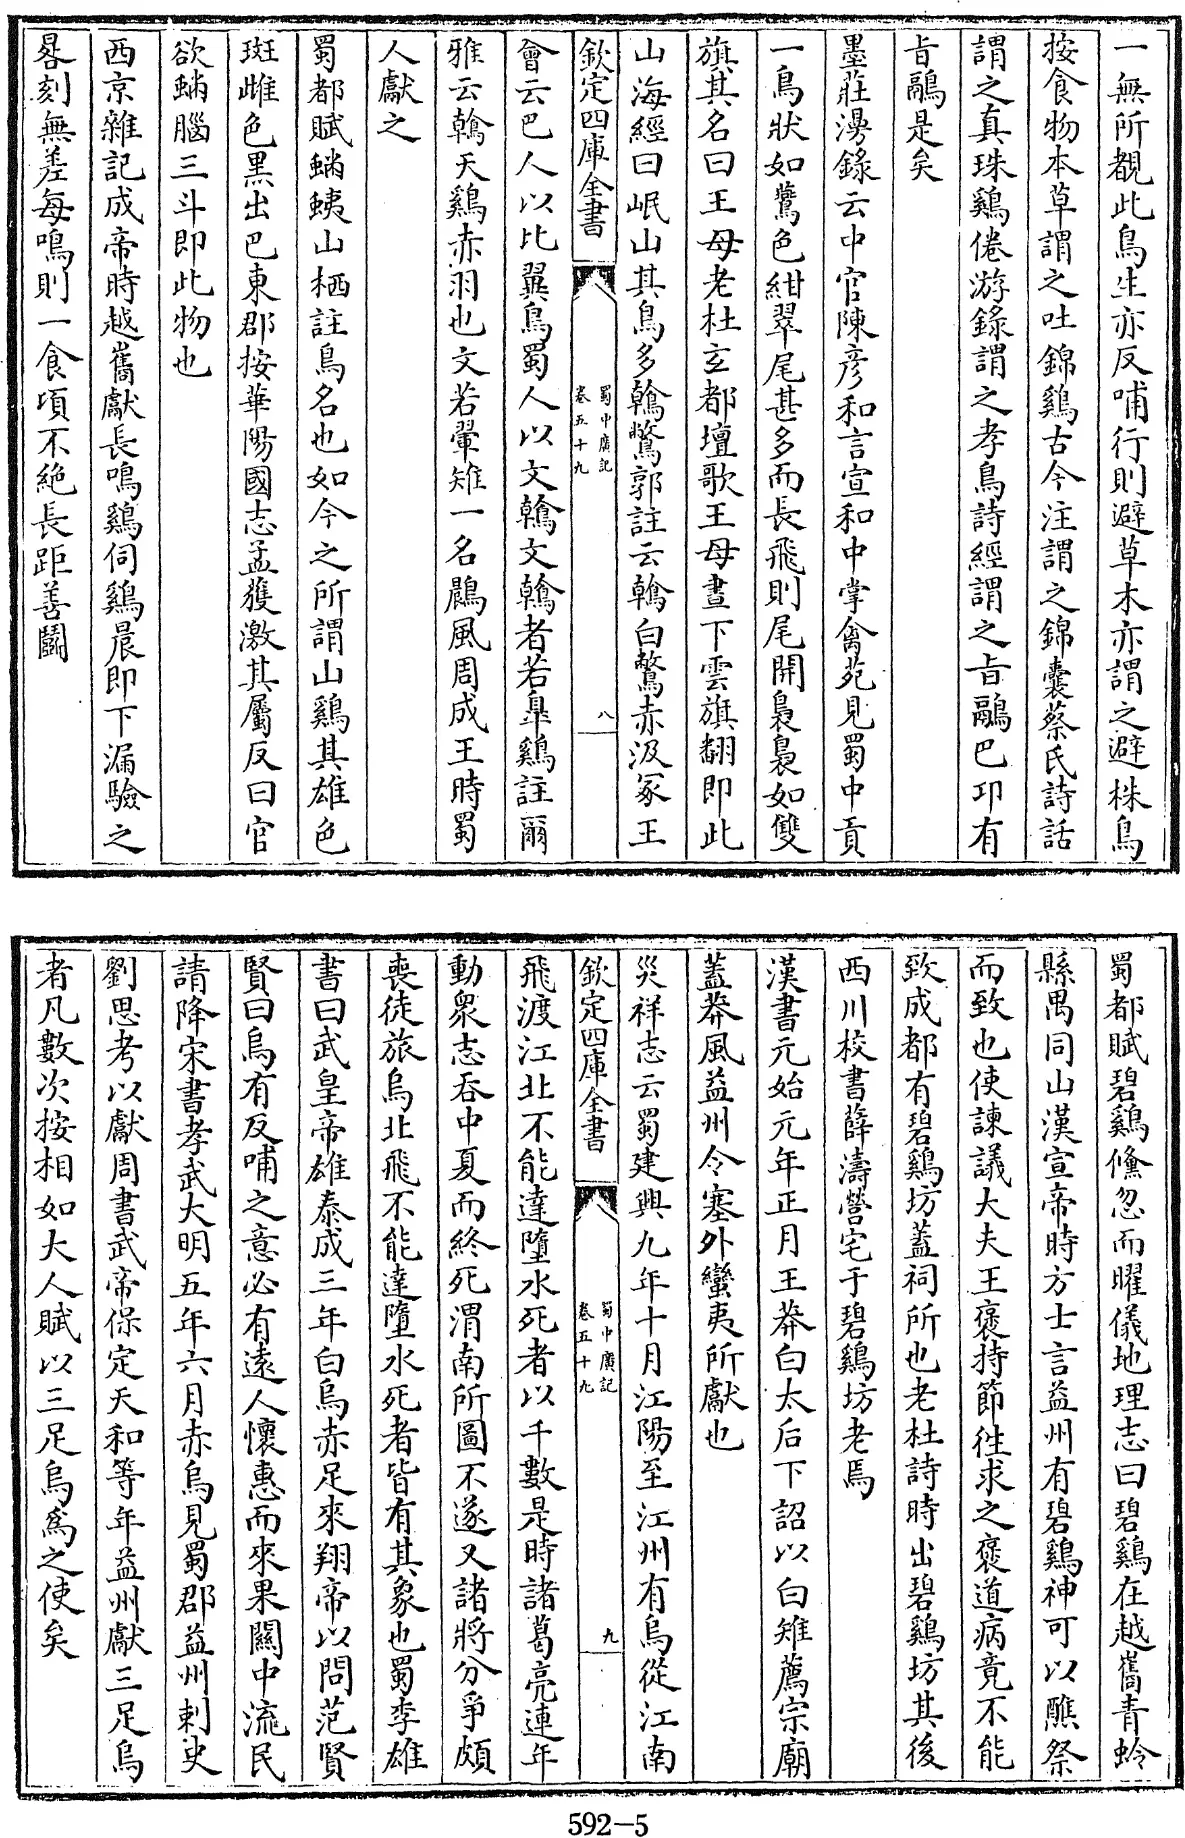 一無所覩此鳥生亦反哺行則避草木亦謂之避株鳥
按食物本草謂之吐錦鷄古今注謂之錦囊蔡氏詩話
謂之真珠鷄倦游錄謂之孝鳥詩經謂之旨鷊巴卭有
旨鷊是矣
墨莊漫錄云中官陳彦和言宣和中掌禽苑見蜀中貢
一鳥狀如鷰色紺翠尾甚多而長飛則尾開裊裊如雙
旗其名曰王母老杜玄都壇歌王母晝下雲旗翻即此
山海經曰岷山其鳥多鶾鷩郭註云鶾白鷩赤汲冢王
欽定四庫全書
蜀中廣記
卷五十九
八
會云巴人以比翼鳥蜀人以文鶾文鶾者若臯鷄註爾
雅云鶾天鷄赤羽也文若翬雉一名鷐風周成王時蜀
人獻之
蜀都賦蟕蛦山栖註鳥名也如今之所謂山鷄其雄色
斑雌色黒出巴東郡按華陽國志孟獲激其屬反曰官
欲蟕腦三斗即此物也
西京雜記成帝時越嶲獻長鳴鷄伺鷄晨即下漏驗之
晷刻無差每鳴則一食頃不絶長距善鬭
蜀都賦碧鷄儵忽而曜儀地理志曰碧鷄在越嶲青蛉
縣禺同山漢宣帝時方士言益州有碧鷄神可以醮祭
而致也使諫議大夫王褒持節徃求之褒道病竟不能
致成都有碧鷄坊蓋祠所也老杜詩時出碧鷄坊其後
西川校書薛濤營宅于碧鷄坊老焉
漢書元始元年正月王莽白太后下詔以白雉薦宗廟
蓋莽風益州令塞外蠻夷所獻也
災祥志云蜀建興九年十月江陽至江州有鳥從江南
欽定四庫全書
蜀中廣記
卷五十九
九
飛渡江北不能達墮水死者以千數是時諸葛亮連年
動衆志吞中夏而終死渭南所圖不遂又諸將分爭頗
喪徒旅烏北飛不能達墮水死者皆有其象也蜀李雄
書曰武皇帝雄泰成三年白烏赤足來翔帝以問范賢
賢曰烏有反哺之意必有遠人懷惠而來果關中流民
請降宋書孝武大明五年六月赤烏見蜀郡益州刺史
劉思考以獻周書武帝保定天和等年益州獻三足烏
者凡數次按相如大人賦以三足烏為之使矣
592-5